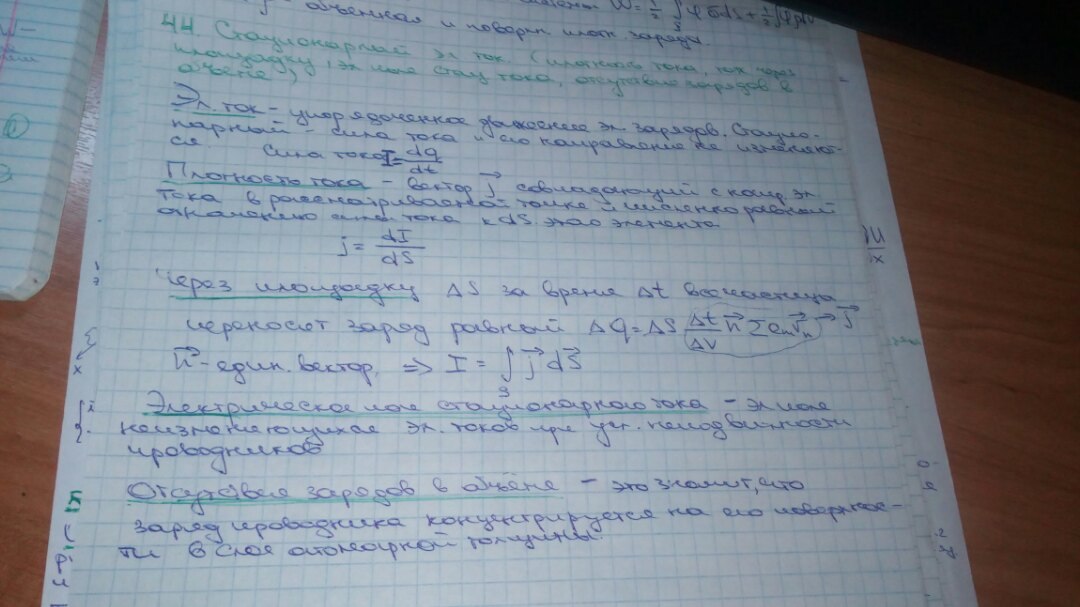 объемная и поверхн. плот. заряда. W = 1/2 ∫ φ σ dS + 1/2 ∫ φ ρ dV
44. Стационарный эл. ток. (плотность тока, ток через
площадку, эл. поле стац тока, отсутствие зарядов в
объеме)
Эл. ток – упорядоченное движение эл. зарядов. Стацио-
нарный – сила тока и его направление не изменяют-
ся. Сила тока I = dq/dt
Плотность тока – вектор j⃗ совпадающий с напр эл.
тока в рассматриваемой точке и численно равный
отношению силы тока к dS этого элемента
j = dI/dS
Через площадку ΔS за время Δt
переносит заряд равный Δq = ΔS Δt/ΔV n⃗ Σ → j⃗
n⃗ – един. вектор. ⇒ I = ∫_S j⃗ dS⃗
Электрическое поле стационарного тока – эл поле
неизменяющихся эл. токов при усл. неподвижности
проводников
Отсутствие зарядов в объёме – это значит, что
заряд проводника концентрируется на его поверхнос-
ти в слое атомарной толщины.